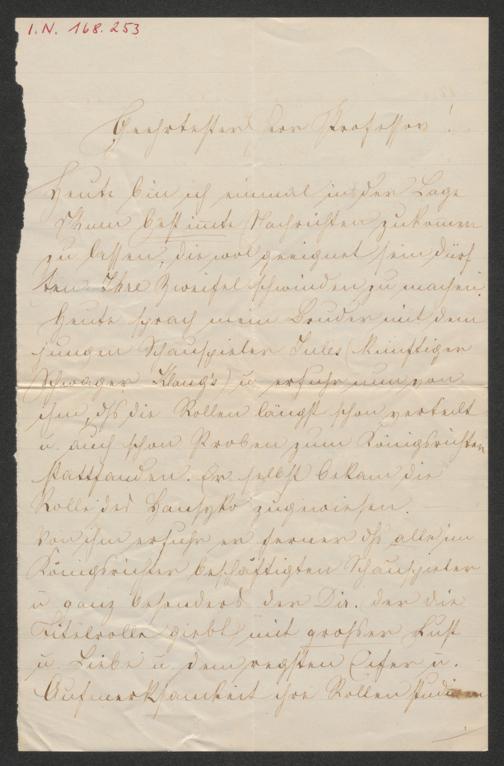 I.N. 168.253
Geehrtester Herr Professor!
Heute bin ich einmal in der Lage
Ihnen bestimmte Nachrichten zukommen
zu lassen, die wol geeignet sein dürf
ten Ihre Zweifel schwinden zu machen.
Heute sprach mein Bruder mit dem
jungen Schauspieler Jules (künftiger
Schwager Klang's) u. erfuhr nun von
ihm, dß die Rollen längst schon verteilt
u. auch schon Proben zum Königsrichter
stattfanden. Er selbst bekam die
Rolle des zugewiesen.
Von ihm erfuhr er ferner dß alle im
Königsrichter beschäftigten Schauspieler
u ganz besonders der Dir. der die
Titelrolle giebt mit grosser Lust
u. Liebe u. dem regsten Eifer u.
Aufmerksamkeit ihre Rollen